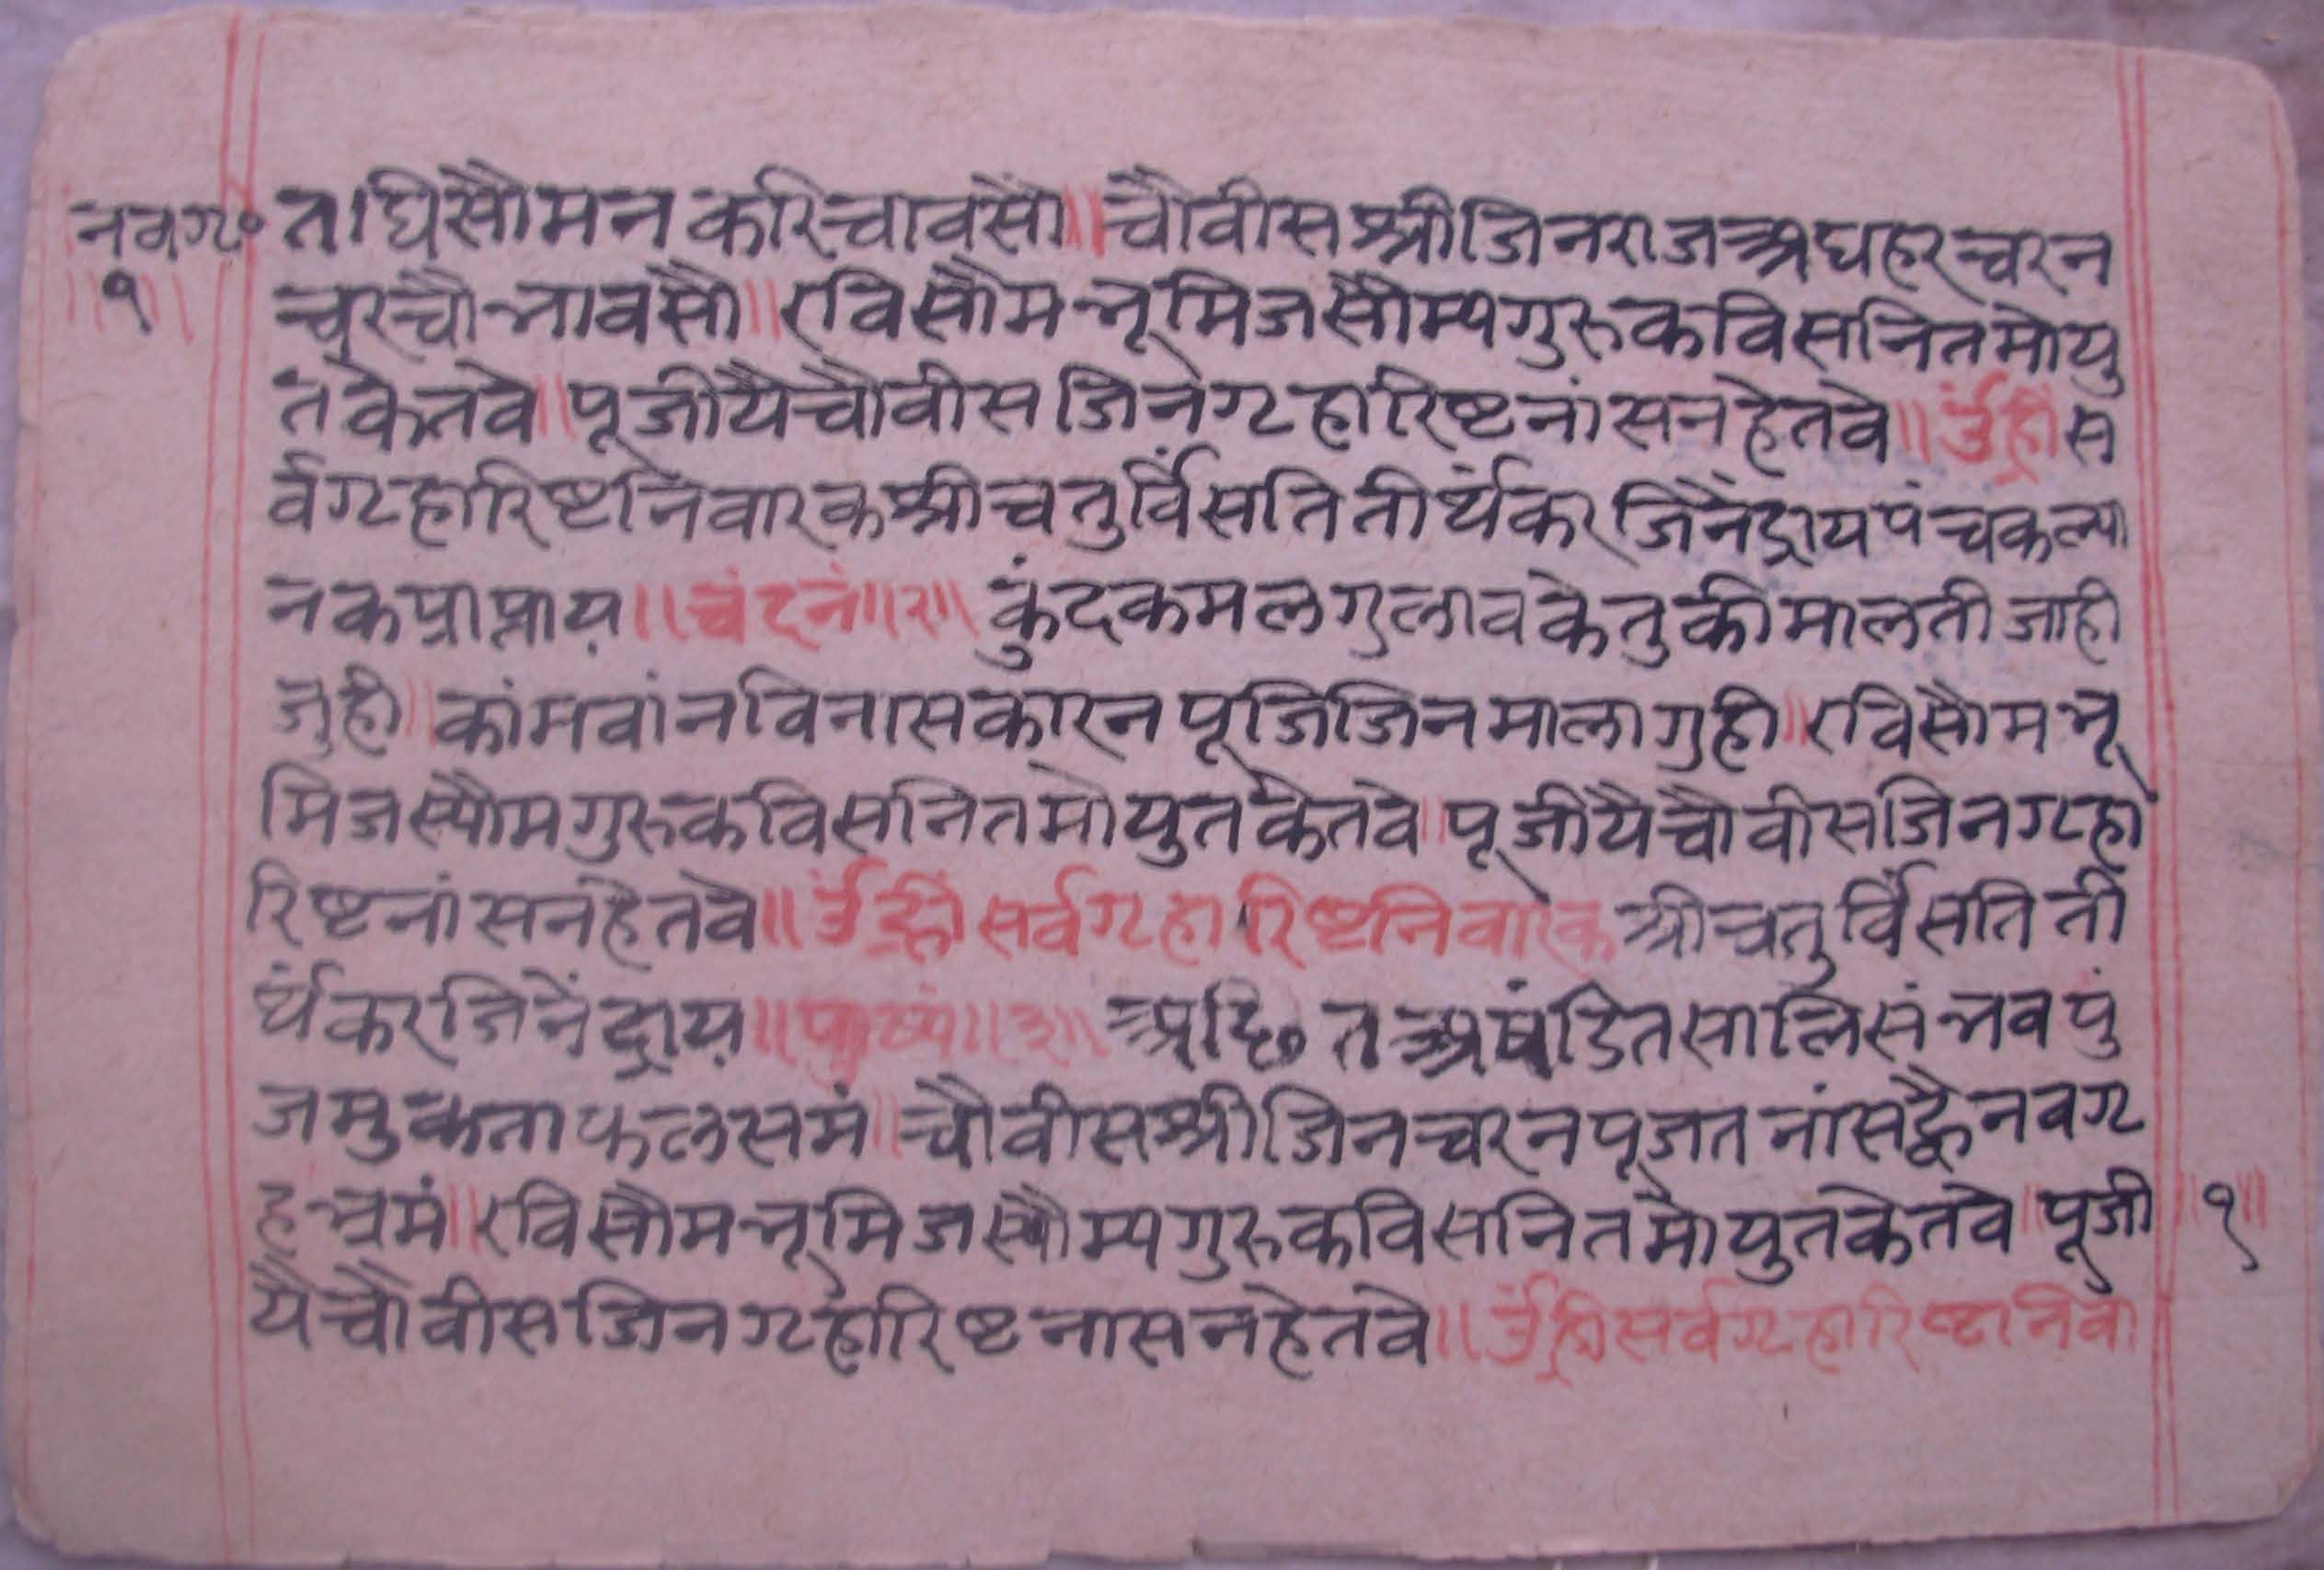 नवग्र० ताघिसौमनकरिचावसौं॥चौवीसश्रीजिनराजअघहरचरन
१ चरचौभावसौं॥रविसौमभूमिजसौम्यगुरुकविसनितमोयु
तकेतवे॥पूजीयैचौवीसजिनग्रहारिष्टनांसनहेतवे॥ॐह्रीस
र्वग्रहारिष्टनिवारकश्रीचतुर्विंसतितीर्थंकरजिनैंद्रायपंचकल्या
नकप्राप्ताय॥चंदनं॥२॥ कुंदकमलगुलावकेतुकीमालतीजाही
जुही॥कांमवांनविनासकारनपूजिजिनमालागुही॥रविसौमभू
मिजस्यौमगुरुकविसनितमोयुतकेतवे॥पूजीयैचौवीसजिनग्रहा
रिष्टनांसनहेतवे॥ॐह्रीसर्वग्रहारिष्टनिवारकश्रीचतुर्विंसतिती
र्थंकरजिनैंद्राय॥पुष्पं॥३॥ अछि० तअषंडितसालिसंभवपुं
जमुकताफलसमं॥चौवीसश्रीजिनचरनपूजतनांसह्वैनवग्र
हभ्रमं॥रविसौमभूमिजस्यौम्यगुरुकविसनितमोयुतकेतवे॥पूजी ॥१॥
यैचौवीसजिनग्रहारिष्टनासनहेतवे॥ॐह्रीसर्वग्रहारिष्टानिवा